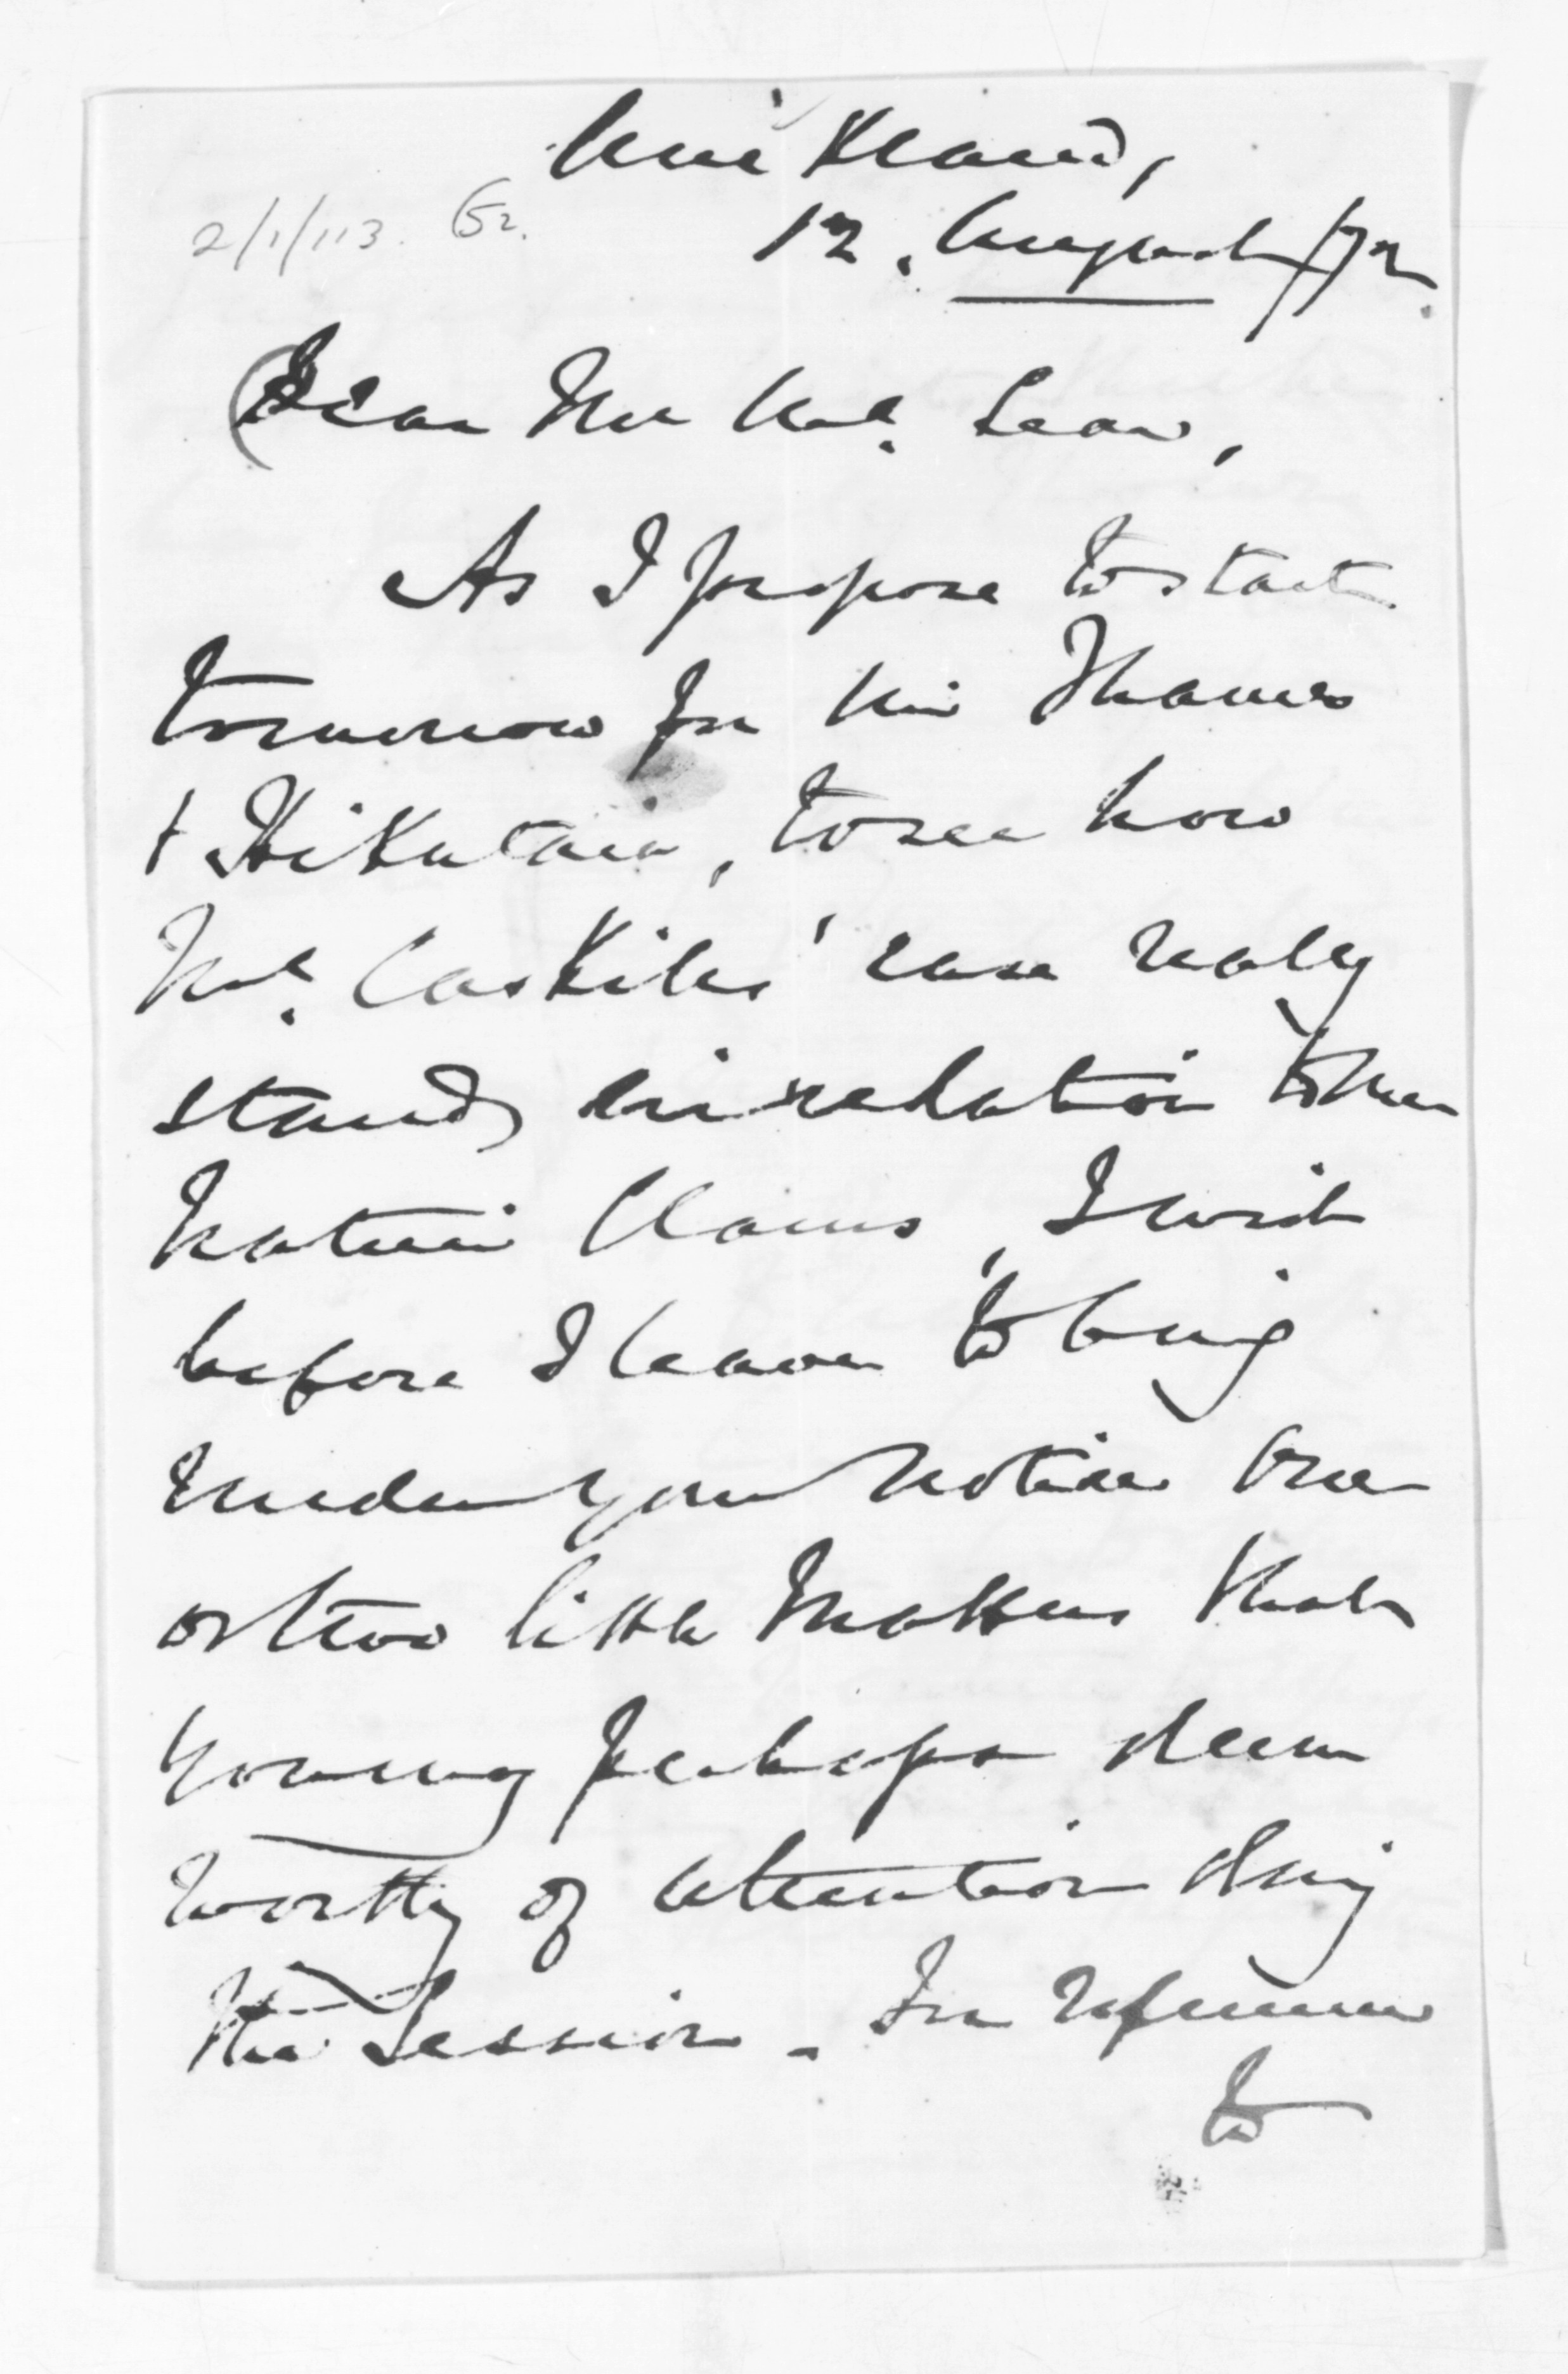 Auckland,
12. August /72.
2/1/113. G2.
Dear Mr McLean,
As I propose to start
tomorrow for the Thames
& Hikutaia, to see how
McCaskills' case really
stands in relation to the
Native Claims, I wish
before I leave to bring
under your notice one
or two little matters that
you may perhaps deem
worthy of attention during
the Session. In reference
to